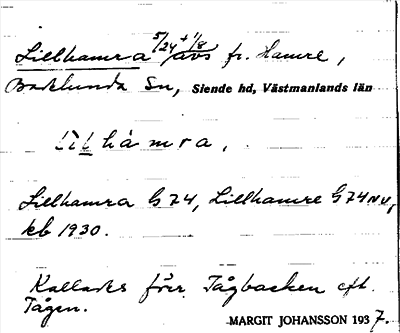 Lillhamra 5/24 + 1/8 avs fr. Hamre,
Badelunda Sn, Siende hd, Västmanlands län
lil hàmra,
Lillhamra G 74, Lillhamre G 74 NV,
kb 1930.
Kallades förr Tågbacken eft.
Tågen.
MARGIT JOHANSSON 1937.